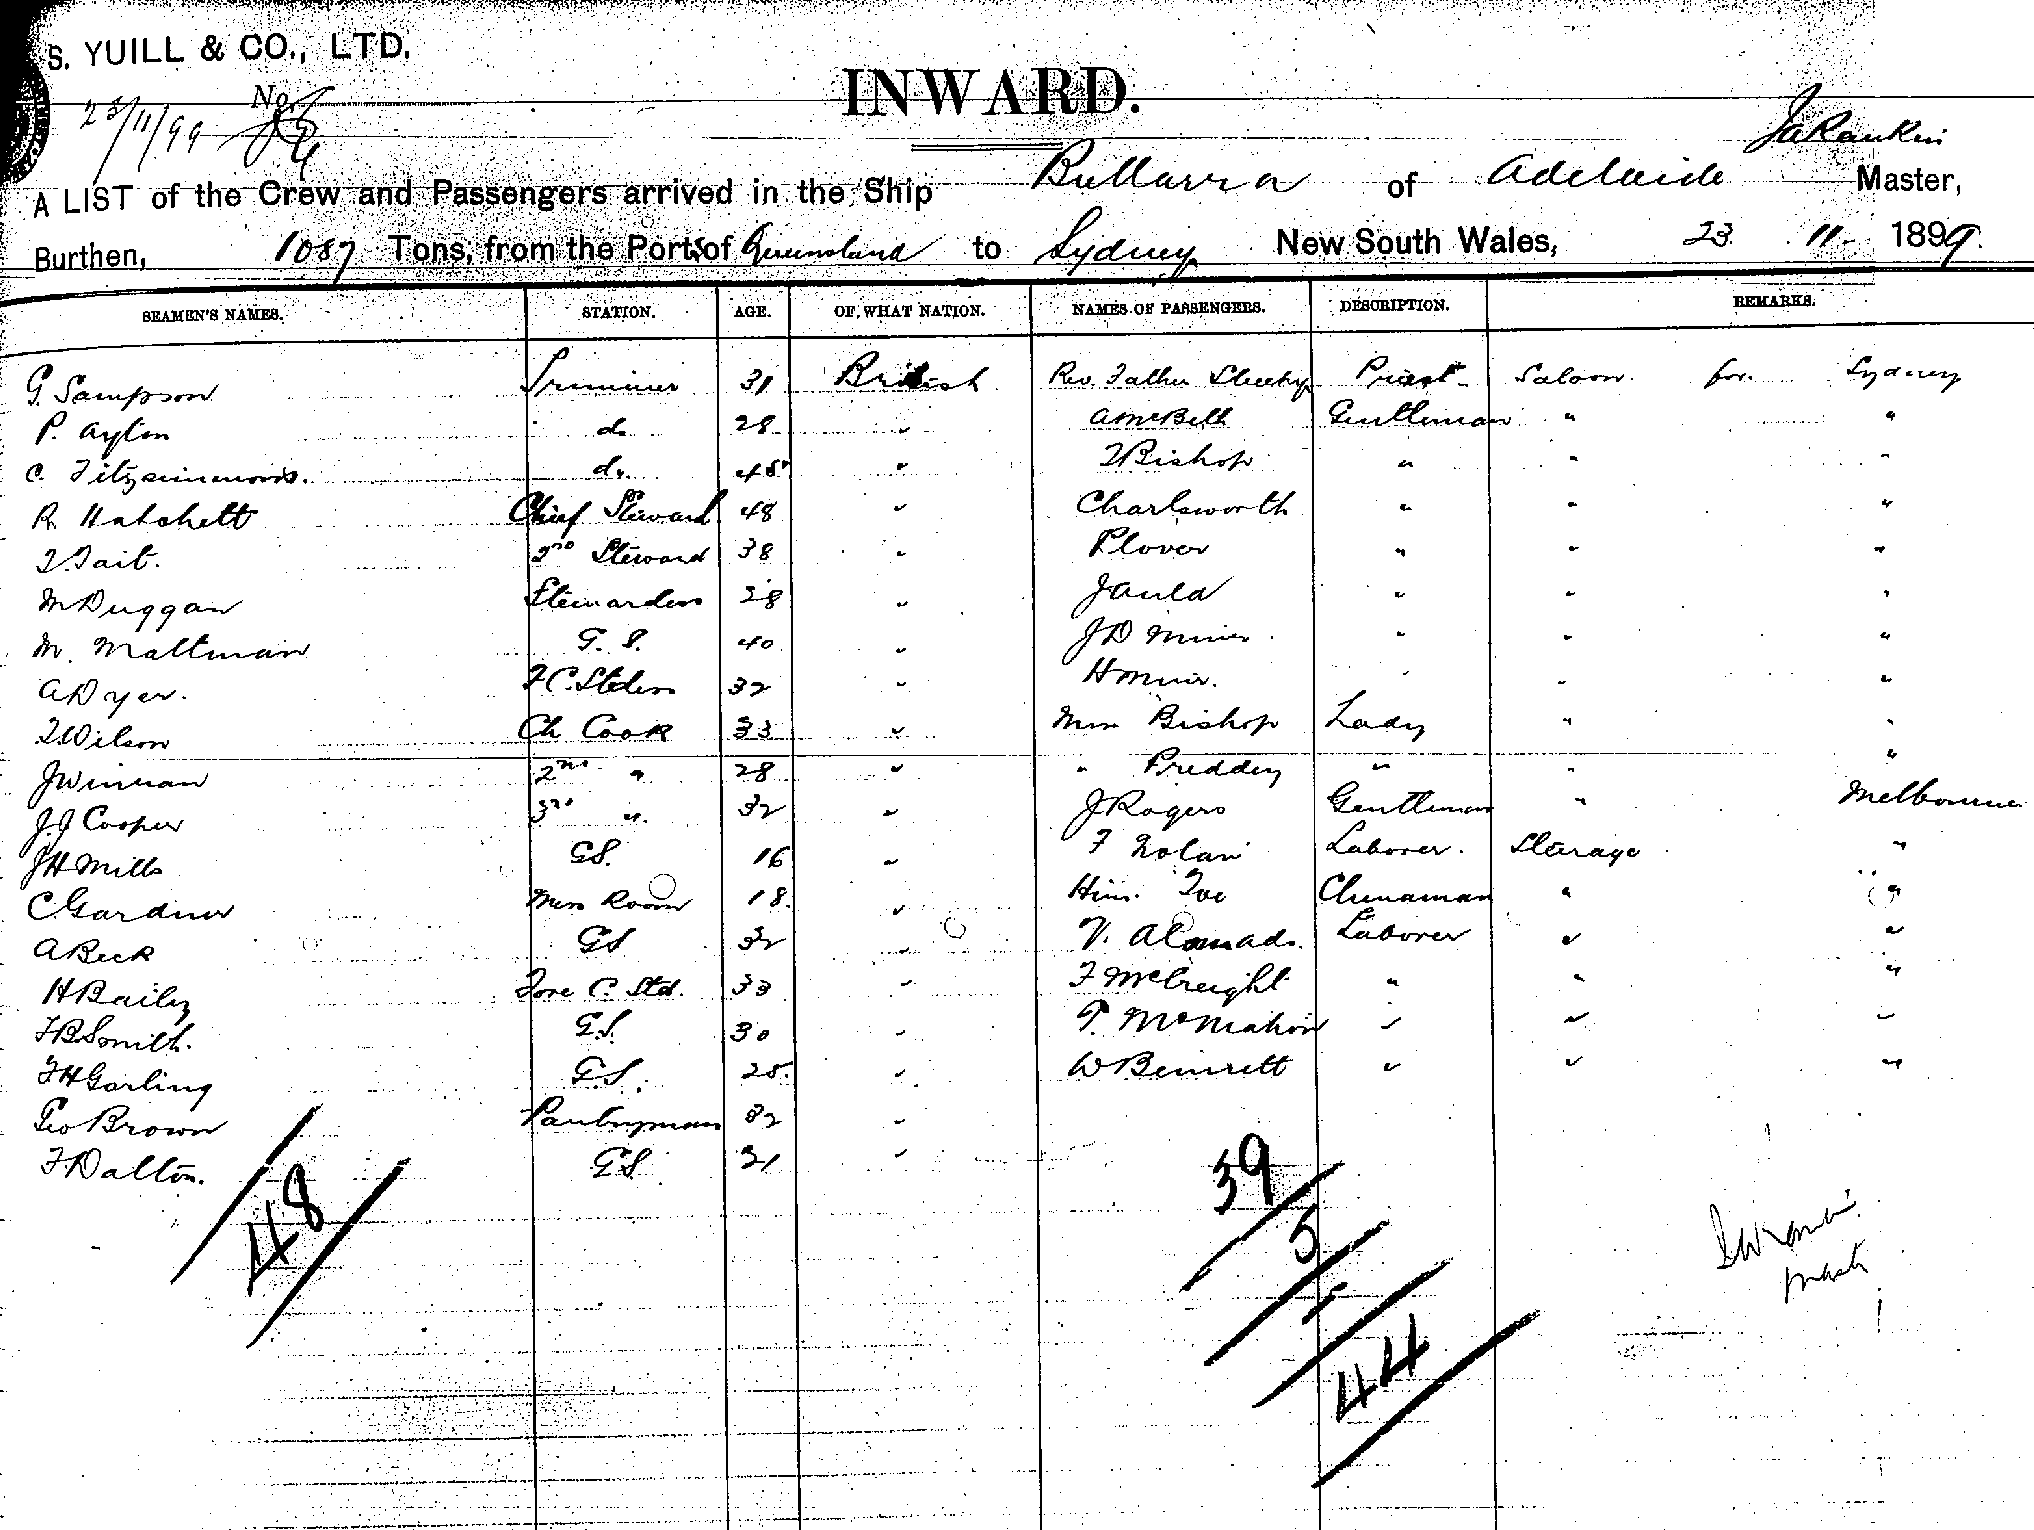 S. YUILL & CO., LTD.
No
23/11/99
INWARD.
Ja Rankin
A LIST of the Crew and Passengers arrived in the Ship Bullarra of Adelaide Master,
Burthen, 1087 Tons, from the Ports of Queensland to Sydney New South Wales, 23. 11. 1899.
SEAMEN'S NAMES. STATION. AGE. OF WHAT NATION. NAMES OF PASSENGERS. DESCRIPTION. REMARKS.
G. Sampson Trimmer 31 British Rev. Father Sheehy Priest Saloon for Sydney
P. Ayton do 28 " A McBeth Gentleman " "
C. Fitzsimmons. do. 45 " T Bishop " " "
R Hatchett Chief Steward 48 " Charlsworth " " "
T. Tait. 2nd Steward 38 " Plover " " "
M Duggan Stewardess 28 " J Auld " " "
M. Maltman G. S. 40 " J D Muir " " "
A Dyer. F C. Stdess 32 " H Muir. " " "
T. Wilson Ch Cook 33 " Mrs Bishop Lady " "
J Winman 2nd " 28 " " Preddey " " "
J. J Cooper 3rd " 32 " J Rogers Gentleman " Melbourne
J H Mills GS. 16 " F Nolan Laborer. Steerage "
C Gardner Mess Room 18. " Him. Toe Chinaman " "
A Beck GS 32 " V. Laborer " "
H Baily Fore C. Std. 33 " F McCreight " " "
F B Smith. G.S. 30 " P. McMahon " " "
F H Garling G.S. 25. " W Bennett " " "
Geo Brown Pantryman 32 "
F. Dalton. GS 21 "
48
39
5
44